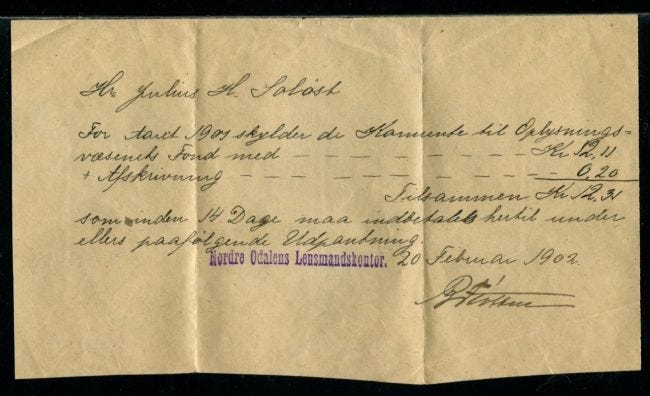 Hr Julius H. Soløst
For Aaret 1901 skylder de Kornrente til Oplysnings=
væsenets Fond med — — — — — — — — Kr 12,11
+ Afskrivning — — — — — — — — 0,20
Tilsammen Kr 12,31
som inden 14 Dage maa indbetales hertil under
ellers paafølgende Udpantning.
Nordre Odalens Lensmandskontor. 20 Februar 1902